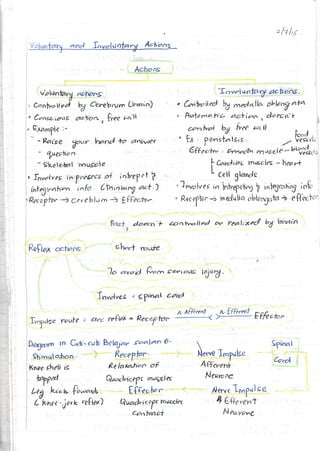 2/7/15
Voluntary and Involuntary Actions
Actions
Voluntary actions
- Controlled by Cerebrum (brain)
- Conscious action, free will
- Example :-
- Raise your hand to answer question
- Skeletal muscle
- Involves in process of intrepet & integration info (Thinking act)
- Receptor → Cerebrum → Effector
Involuntary actions
• Controlled by medulla oblongata
• Automatic action, doesn't control by free will
• Ex : peristalsis
Effector : Smooth muscle - blood vessels
food
Cardiac muscles - heart
Cell glands
• Involves in intrepeting & integrating info
• Receptor → medulla oblongata → effector
Fast, doesn't controlled or realized by brain
Reflex actions
short route
To avoid from serious injury
Involves : spinal cord
Impulse route : arc reflex = Receptor
A. Afferent
A. Efferent
Effector
Diagram in
Stimulation
Receptor
Nerve Impulse
Spinal Cord
Knee shell is tapped
Relaxation of Quadriceps muscles
Afferent Neurone
Leg kick forward
Effector
Nerve Impulse
(knee-jerk reflex)
Quadriceps muscles contract
Efferent Neurone